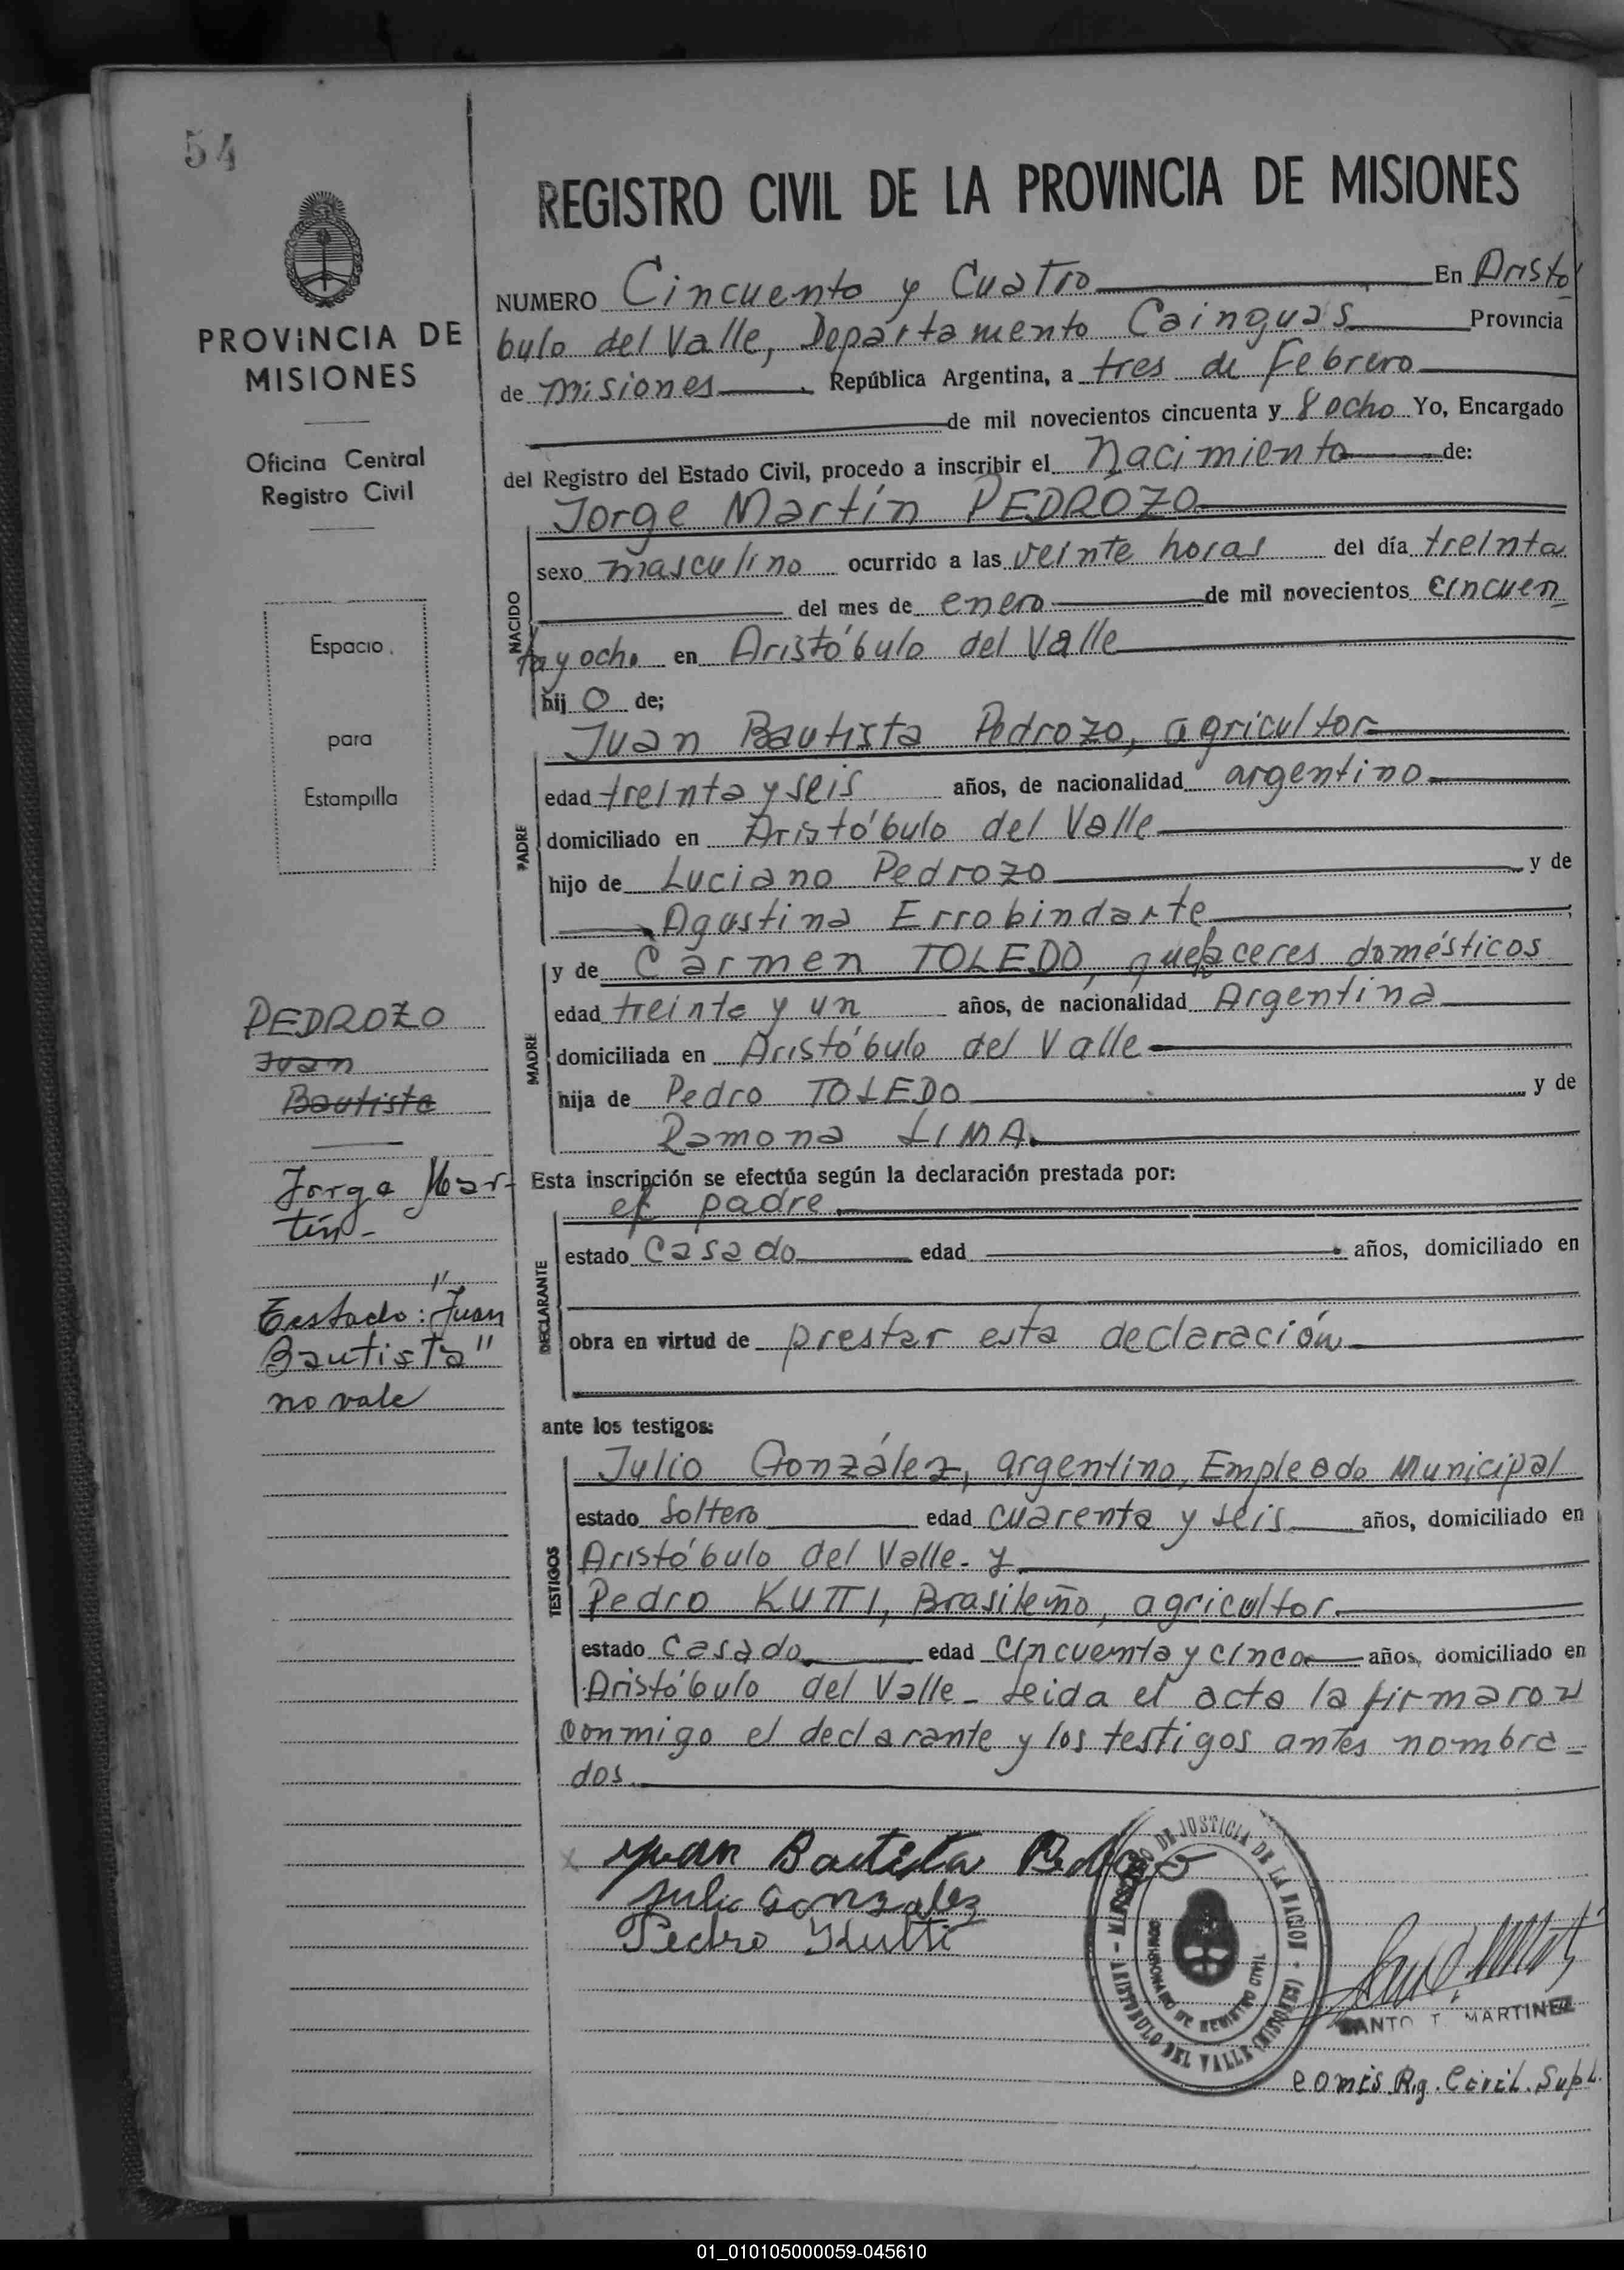 54
PROVINCIA DE
MISIONES
Oficina Central
Registro Civil
Espacio
para
Estampilla
PEDROZO
Juan
Bautista
Jorge Mar-
tín-
Testado: "Juan
Bautista"
no vale
REGISTRO CIVIL DE LA PROVINCIA DE MISIONES
NUMERO Cincuenta y Cuatro En Aristó
bulo del Valle, Departamento Cainguás Provincia
de Misiones República Argentina, a tres de Febrero
de mil novecientos cincuenta y 8 ocho Yo, Encargado
del Registro del Estado Civil, procedo a inscribir el Nacimiento de:
Jorge Martín PEDROZO
NACIDO
sexo masculino ocurrido a las veinte horas del día treinta
del mes de enero de mil novecientos cincuen
ta y ocho en Aristóbulo del Valle
hij o de;
PADRE
Juan Bautista Pedrozo, agricultor
edad treinta y seis años, de nacionalidad argentino
domiciliado en Aristóbulo del Valle
hijo de Luciano Pedrozo y de
Agustina Errobindarte
MADRE
y de Carmen TOLEDO, quehaceres domésticos
edad treinta y un años, de nacionalidad Argentina
domiciliada en Aristóbulo del Valle
hija de Pedro TOLEDO y de
Ramona LIMA.
Esta inscripción se efectúa según la declaración prestada por:
DECLARANTE
el padre
estado Casado edad años, domiciliado en
obra en virtud de prestar esta declaración
ante los testigos:
TESTIGOS
Julio González, argentino, Empleado Municipal
estado Soltero edad cuarenta y seis años, domiciliado en
Aristóbulo del Valle- y
Pedro KUTTI, Brasileño, agricultor
estado Casado edad cincuenta y cinco años, domiciliado en
Aristóbulo del Valle- Leida el acta la firmaron
conmigo el declarante y los testigos antes nombra-
dos.
x Juan Bautista Pedrozo
Julio Gonzalez
Pedro Kutti
MINISTERIO DE JUSTICIA DE LA NACION
ARISTOBULO DEL VALLE (MISIONES)
DE REGISTRO CIVIL
SANTO T. MARTINEZ
Comis Rg. Civil. Supl.
01_010105000059-045610